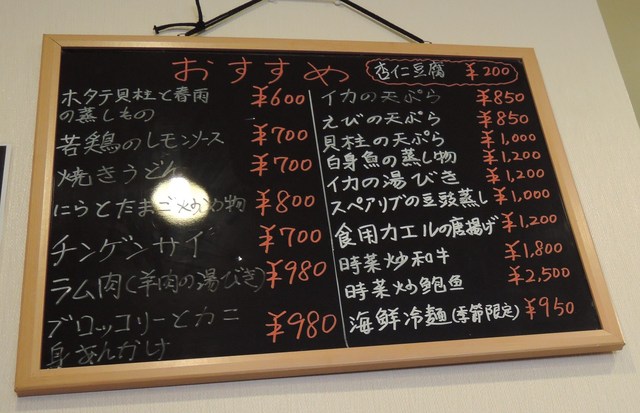 おすすめ
杏仁豆腐 ¥200
ホタテ貝柱と春雨 ¥600
の蒸しもの
若鶏のレモンソース ¥700
焼きうどん ¥700
にらとたまご炒め物 ¥800
チンゲンサイ ¥700
ラム肉(羊肉の湯びき) ¥980
ブロッコリーとカニ ¥980
身あんかけ
イカの天ぷら ¥850
えびの天ぷら ¥850
貝柱の天ぷら ¥1,000
白身魚の蒸し物 ¥1,200
イカの湯びき ¥1,200
スペアリブの豆豉蒸し ¥1,000
食用カエルの唐揚げ ¥1,200
時菜炒和牛 ¥1,800
時菜炒鮑魚 ¥2,500
海鮮冷麺(季節限定) ¥950